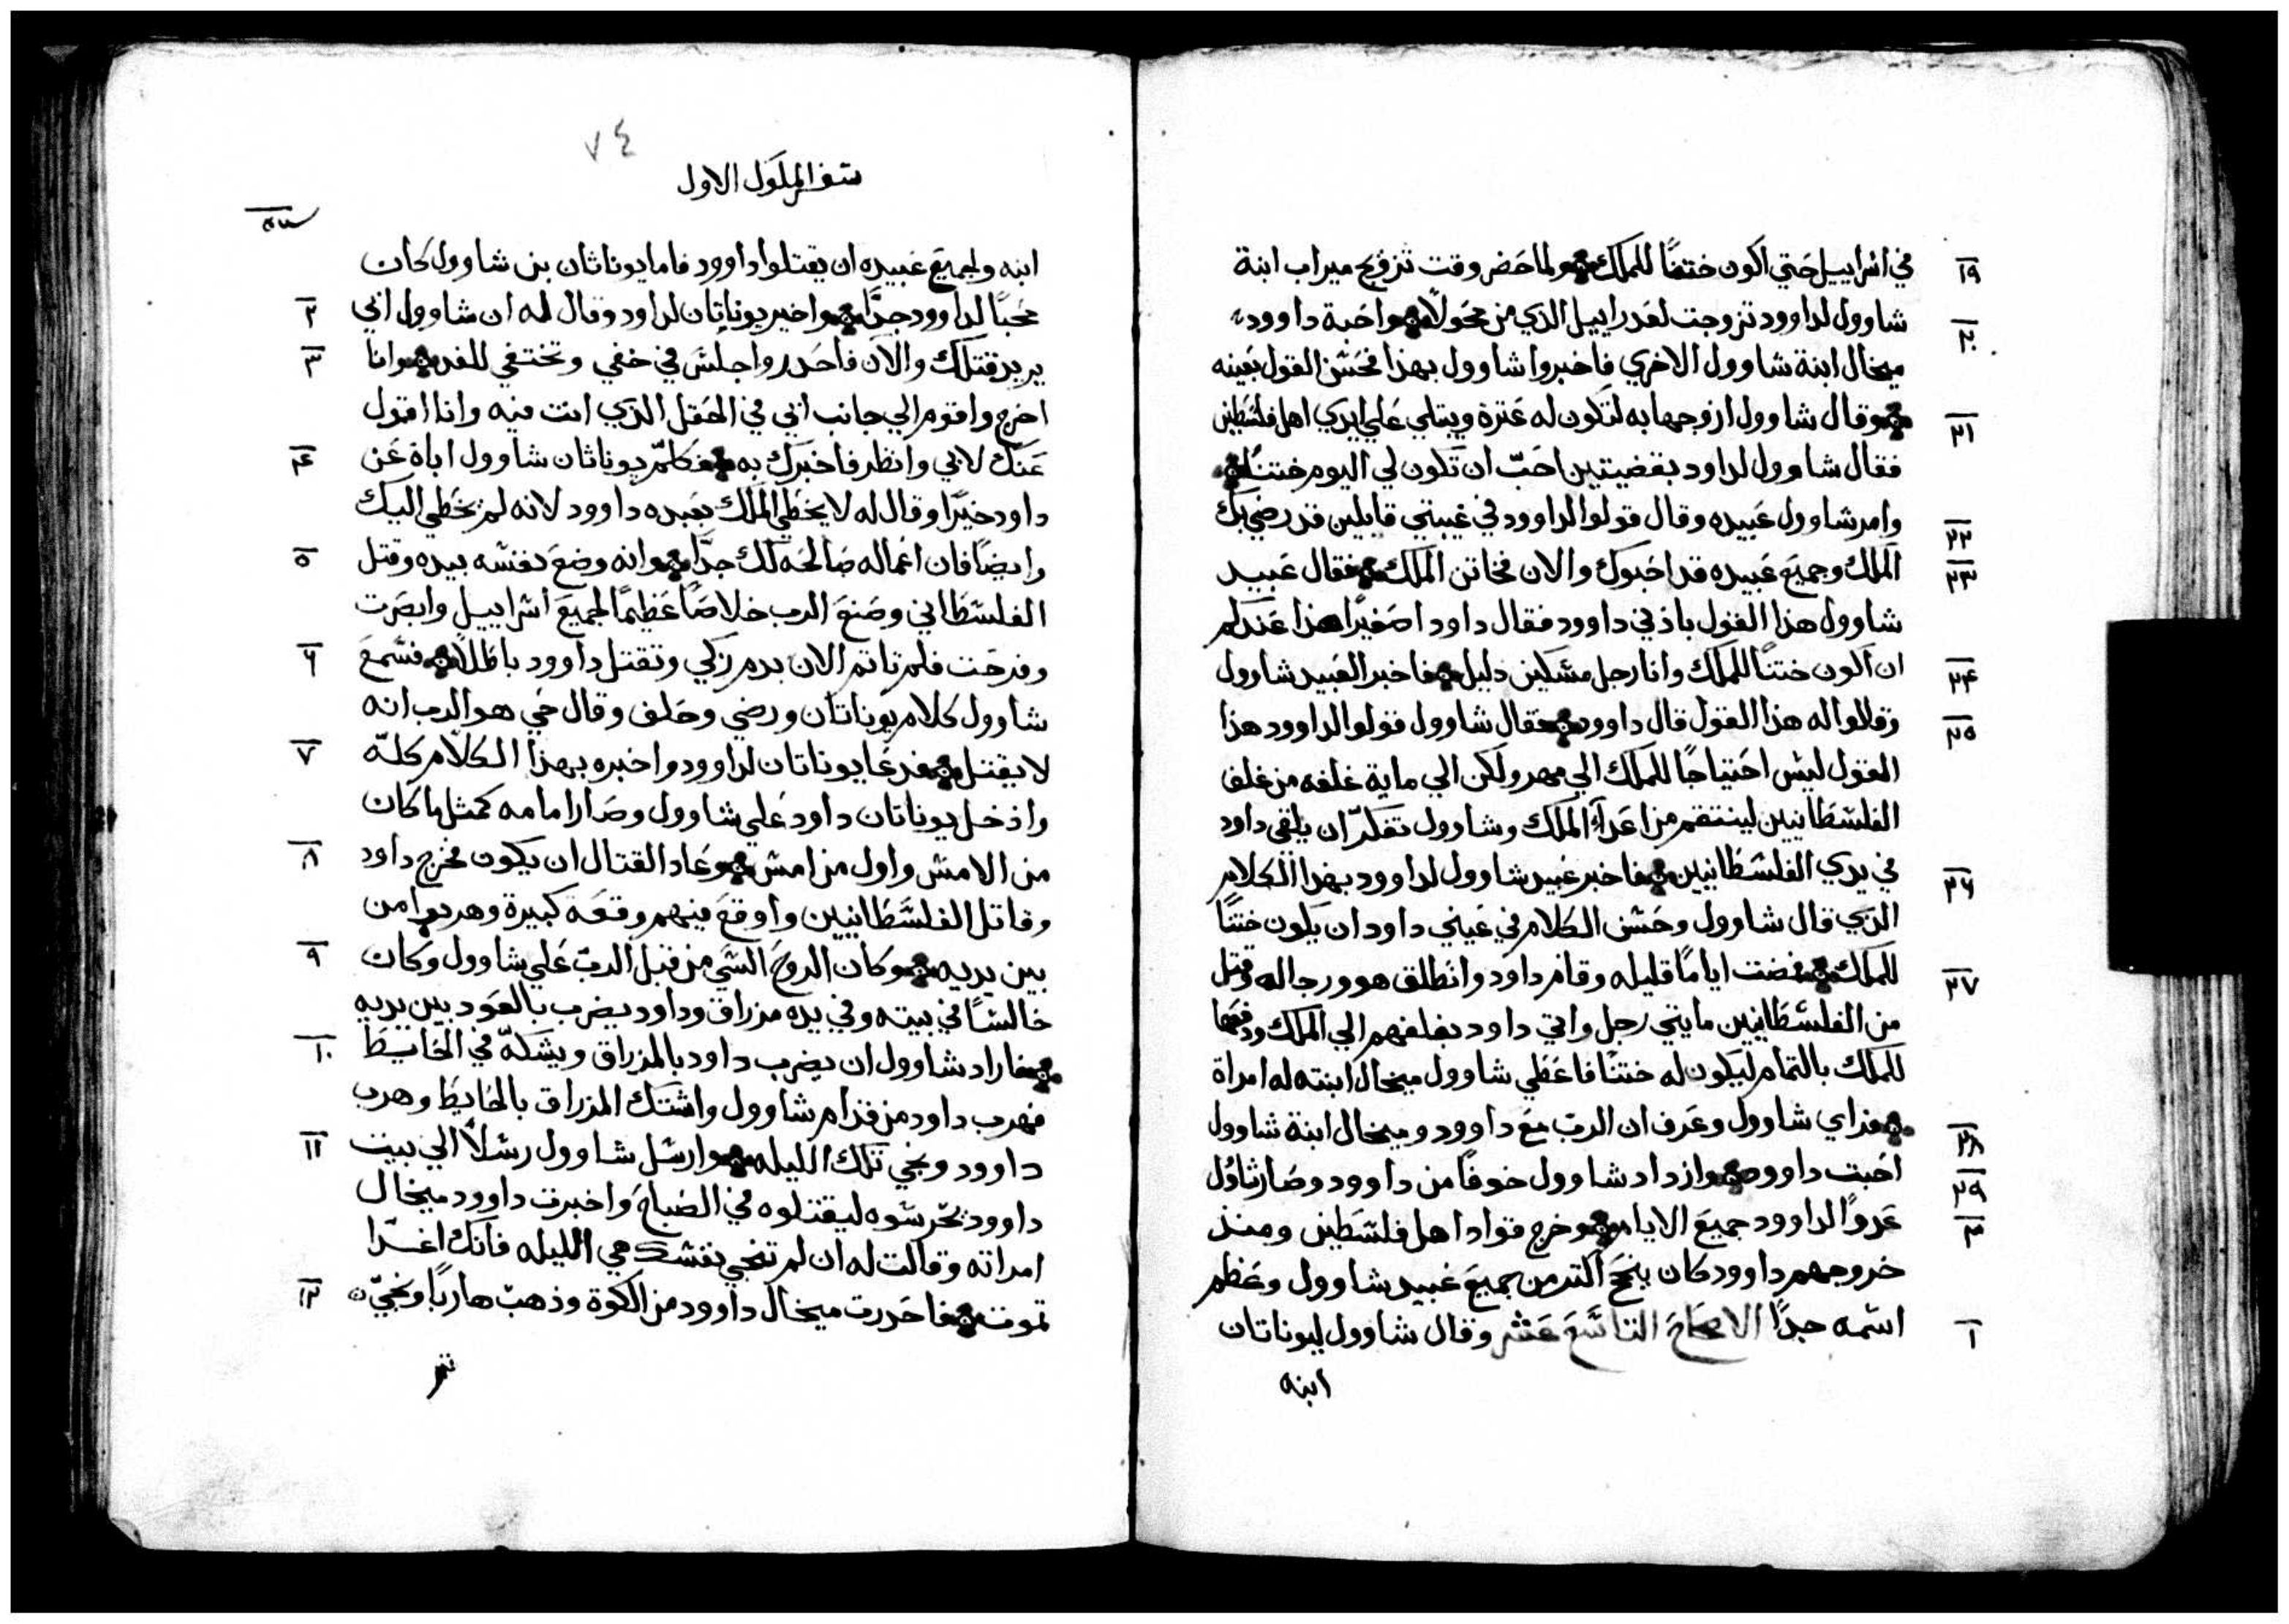 ١٩ في اسراييل حتي اكون ختنًا للملك ولما حضر وقت تزويج ميراب ابنة
٢٠ شاوول لداوود تزوجت لعدراييل الذي من محولا واحبة داوود
ميخال ابنة شاوول الاخري فاخبروا شاوول بهذا فحسن القول بعينه
٢١ وقال شاوول ازوجها به لتكون له عترة ويبتلي علي ايدي اهل فلسطين
فقال شاوول لداود بقضيتين احب ان تكون لي اليوم ختنًا
٢٢ وامر شاوول عبيده وقال قولوا لداوود في غيبتي قايلين قد رضي بك
٢٣ الملك وجميع عبيده قد احبوك والان فخاتن الملك فقال عبيد
شاوول هذا القول باذني داوود فقال داود اصغيرًا هذا عندكم
٢٤ ان اكون ختنًا للملك وانا رجل مسكين دليل فاخبر العبيد شاوول
٢٥ وقلاوا له هذا القول قال داوود فقال شاوول قولوا لداوود هذا
القول ليس احتياجًا للملك الي مهر ولكن الي ماية غلفه من غلف
الفلسطانيين لينتقم من اعدآء الملك وشاوول تفكر ان يلقي داود
٢٦ في يدي الفلسطانيين فاخبر عبيد شاوول لداوود بهذا الكلام
الذي قال شاوول وحسن الكلام في عيني داود ان يكون ختنًا
٢٧ للملك فمضت ايامًا قليله وقام داود وانطلق هو ورجاله وقتل
من الفلسطانيين مايتي رجل واتي داود بغلفهم الي الملك ودفعها
للملك بالتمام ليكون له ختنًا فاعطي شاوول ميخال ابنته له امراة
٢٨ فراي شاوول وعرف ان الرب مع داوود وميخال ابنة شاوول
٢٩ احبت داوود وازداد شاوول خوفًا من داوود وصار شاول
٣٠ عدوًا لداوود جميع الايام وخرج قواد اهل فلسطين ومنذ
خروجهم داوود كان ينجح اكتر من جميع عبيد شاوول وعظم
١ اسمه جدًا الاصحاح التاسع عشر وقال شاوول ليوناتان
ابنه
٧٤
سفر الملوك الاول
ابنه ولجميع عبيده ان يقتلوا داوود فاما يوناثان بن شاوول كان
٢ محبًا لداوود جدًّا واخبر يوناتان لداود وقال له ان شاوول ابي
٣ يريد قتلك والآن فاحدر واجلس في خفي وتختفي للغد وانا
اخرج واقوم الي جانب ابي في الحقل الذي انت فيه وانا اقول
٤ عنك لابي وانظر فاخبرك به فكلم يوناثان شاوول اباة عن
داود خيرًا وقال له لا يخطي الملك بعبده داوود لانه لم يخطي اليك
٥ وايضًا فان اعماله صالحه لك جدًّا وانه وضع نفسه بيده وقتل
الفلسطاني وصنع الرب خلاصًا عظيمًا لجميع اسراييل وابصرت
٦ وفرحت فلم تاتم الان بدم زكي وتقتل داوود باطلًا فسمع
شاوول كلام يوناتان ورضي وحلف وقال حي هو الرب انه
٧ لا يقتل فدعا يوناتان لداوود واخبره بهذا الكلام كله
وادخل يوناتان داود علي شاوول وصار امامه كمثل ما كان
٨ من الامس واول من امس وعاد القتال ان يكون فخرج داود
وقاتل الفلسطانيين واوقع فيهم وقعة كبيرة وهربوا من
٩ بين يديه وكان الروح السي من قبل الرب علي شاوول وكان
جالسًا في بيته وفي يده مزراق وداود يضرب بالعود بين يديه
١٠ فاراد شاوول ان يضرب داود بالمزراق ويشكه في الحايط
فهرب داود من قدام شاوول واشتك المزراق بالحايط وهرب
١١ داوود ونجي تلك الليله وارسل شاوول رسلًا الي بيت
داوود يحرسوه ليقتلوه في الصباح واخبرت داوود ميخال
امراته وقالت له ان لم تنجي نفسك هي الليله فانك اغدًا
١٢ تموت فاحدرت ميخال داوود من الكوة وذهب هاربًا ونجي
ثم